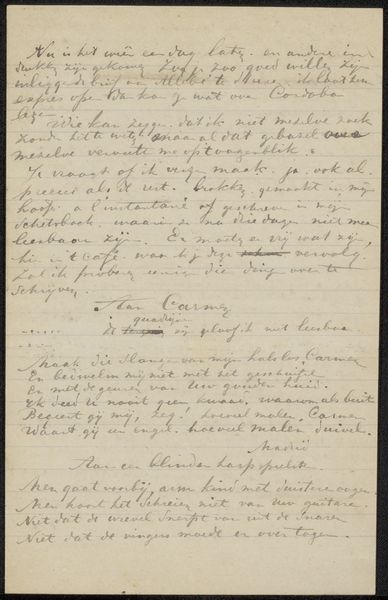 Nu is het weer een dag later. en andere in-
drukken zijn gekomen. Zoudt zoo goed willen zijn
inliggende brief aan te sturen. ik laat hem
expres open. Dan kan je wat over Cordoba
lezen.
Wie kan zeggen. dat ik niet mezelve zoek
zonder het te weten maar al dat gebazel over
mezelve verveelt me op 't oogenblik.
Je vraagt of ik verzen maak. ja. ook al.
precies als de rest. Brokken gemaakt in mijn
hoofd. a l'instantané of geschreven in mijn
schetsboek. waarin ze na drie dagen niet meer
leesbaar zijn. Er moeten er vrij wat zijn,
hier in 't café. waar ik je deze vervolg.
Zal ik probeeren eenige die dingen over te
schrijven.
Aan Carmen
quadrijn
de zij geloof ik niet leesbaar
Maak die slangen van mijn hals los, Carmen
En bezwelm mij niet met het
En met de geuren van Uw gouden huid.
Ik deed U nooit geen kwaad, waarom als buit
Begeert gij mij, zeg! hoeveel malen, Carmen
Waart gij een engel. hoeveel malen duivel.
Madrid
Aan een blinden harpspeelster.
Men gaat voorbij, arm kind met duistre oogen.
Men hoort het schreien niet van uw guitare.
Niet dat de wrevel snerpt van uit de snaren
Niet dat de vingers moede er over togen.